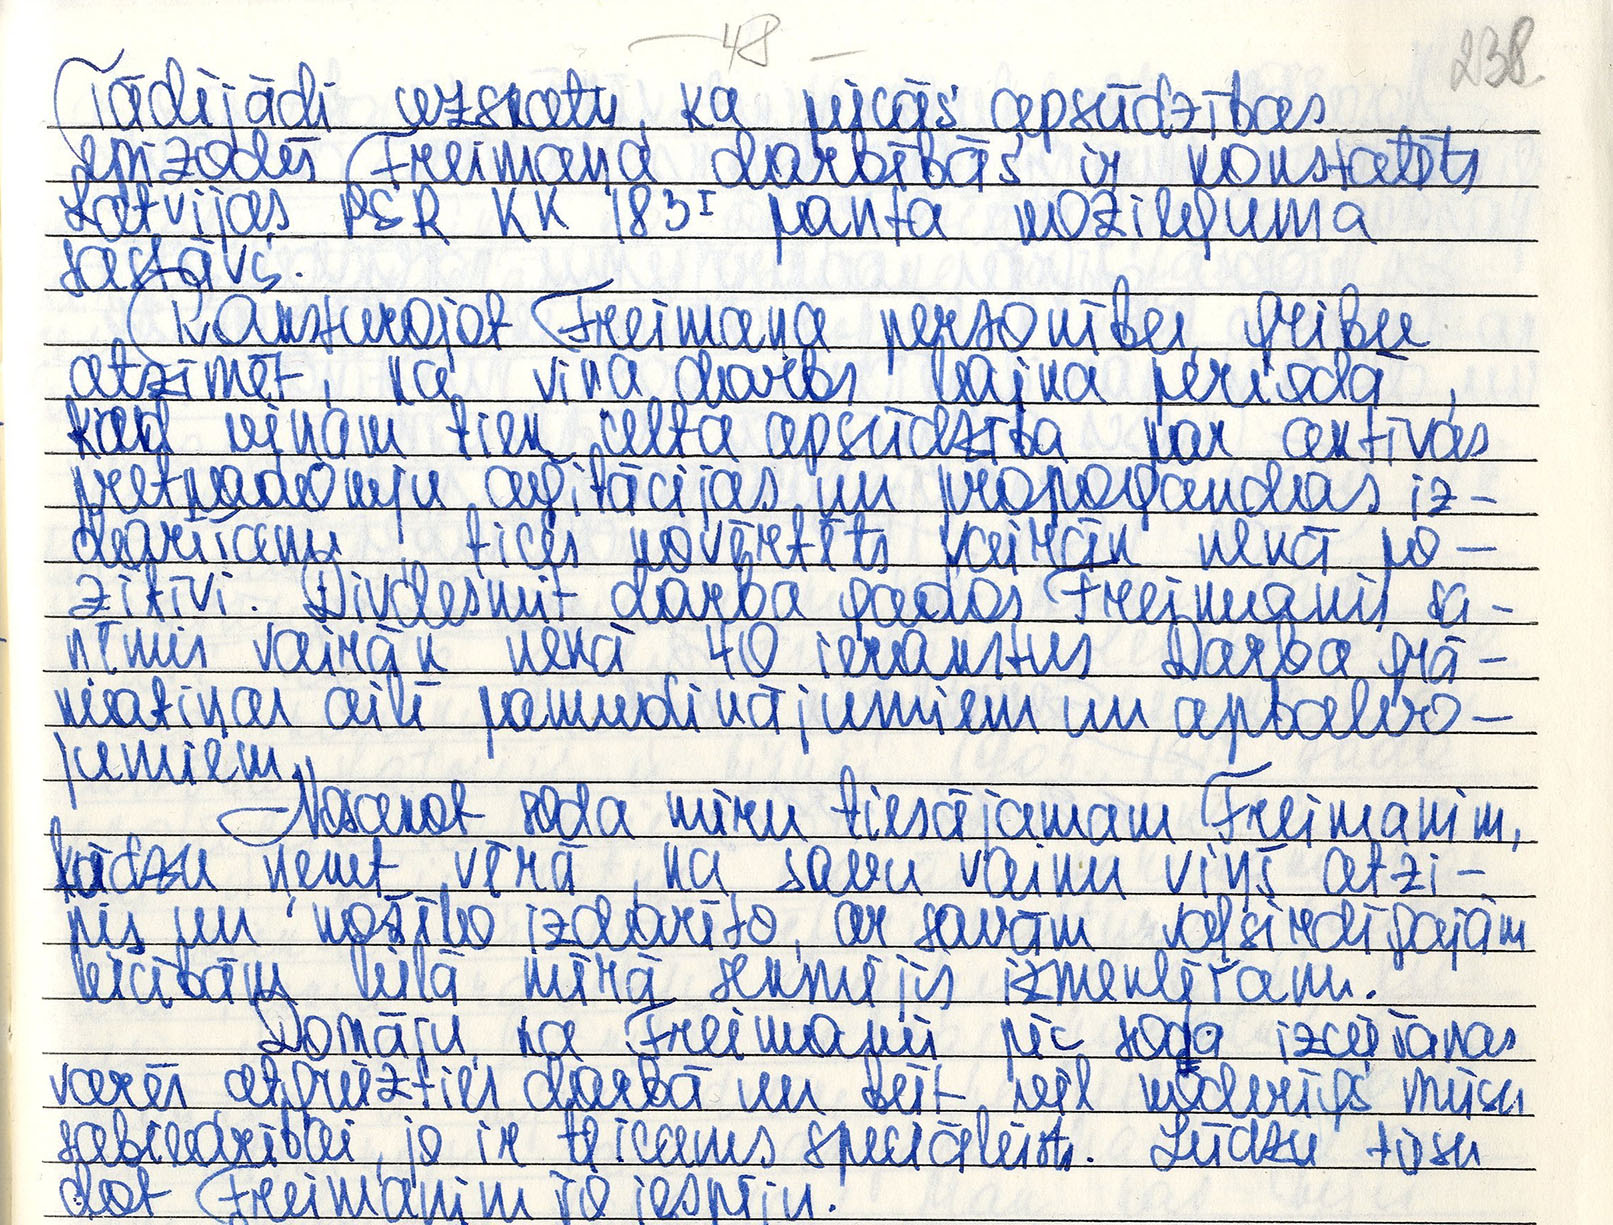 — 48 —
238.
Tādējādi uzskatu, ka visās apsūdzības
epizodēs Freimaņa darbībās ir konstatēts
Latvijas PSR KK 183¹ panta nozieguma
sastāvs.
Raksturojot Freimaņa personību, gribu
atzīmēt, ka viņa darbs laika periodā,
kad viņam tiek celta apsūdzība par aktīvas
pretpadomju aģitācijas un propagandas iz-
darīšanu, ticis novērtēts vairāk nekā po-
zitīvi. Divdesmit darba gados Freimanis sa-
ņēmis vairāk nekā 40 ierakstus Darba grā-
matiņas ailē pamudinājumiem un apbalvo-
jumiem.
Nosakot soda mēru tiesājamam Freimanim,
lūdzu ņemt vērā, ka savu vainu viņš atzi-
nis un nožēlo izdarīto, ar savām vaļsirdīgajām
liecībām lielā mērā sekmējis izmeklēšanu.
Domāju, ka Freimanis pēc soda izciešanas
varēs atgriezties darbā un būt vēl noderīgs mūsu
sabiedrībai, jo ir teicams speciālists. Lūdzu tiesu
dot Freimanim šo iespēju.